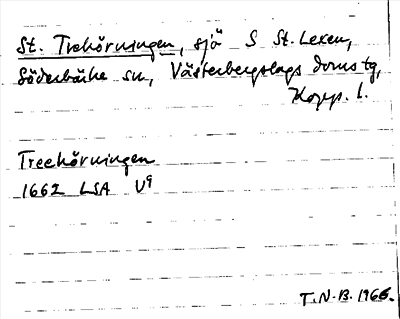 St. Trehörningen, sjö S St. Lexen,
Söderbärke sn, Västerbergslags doms tg,
Kopp. l.
Treehörningen
1662 LSA U⁹
T.N.B. 1966.